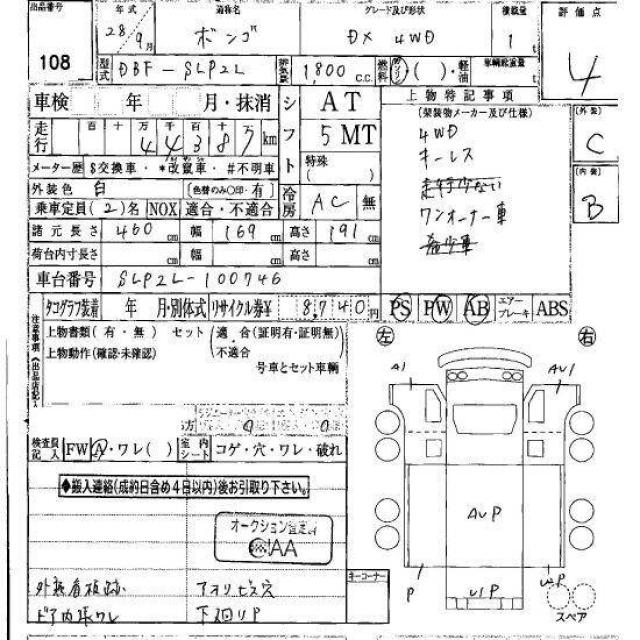 出品番号 108
年式 28年9月 通称名 ボンゴ グレード及び形状 DX 4WD 積載量 1t 評価点 4
型式 DBF-SLP2L 排気量 1,800 c.c. 燃料 ガソリン( )・軽油 車輌総重量 t
車検 年 月・抹消 シフト AT 5 MT 特殊( )
上物特記事項
(架装物メーカー及び仕様)
4WD
キーレス
ワンオーナー車
外装 C
内装 B
走行 百 十 万 千 百 十 万 km
メーター歴 $交換車・*改鼠車・#不明車
外装色 白 (色替のみ○印・有) 冷房 AC 無
乗車定員(2)名 NOX 適合・不適合
諸元長さ 460cm 幅 169cm 高さ 191cm
荷台内寸長さ cm 幅 cm 高さ cm
車台番号 SLP2L-100746
タコグラフ装着 年 月・別体式 リサイクル券¥ 8,740円 PS PW AB エアーブレーキ ABS
注意事項(出品店記入)
上物書類(有・無) セット(適合(証明有・証明無)
上物動作(確認・未確認) ・不適合
号車とセット車輌
左 右
A1 AU1
0 0
検査員記入 FW A・ワレ( ) 室内シート コゲ・穴・ワレ・破れ
◆搬入連絡(成約日含め4日以内)後お引取り下さい。
AUP
オークション査定済
JAA
外装看板跡 アオリビス穴
ドア内張ワレ 下廻りP
キーコーナー
P U1P UP
スペア